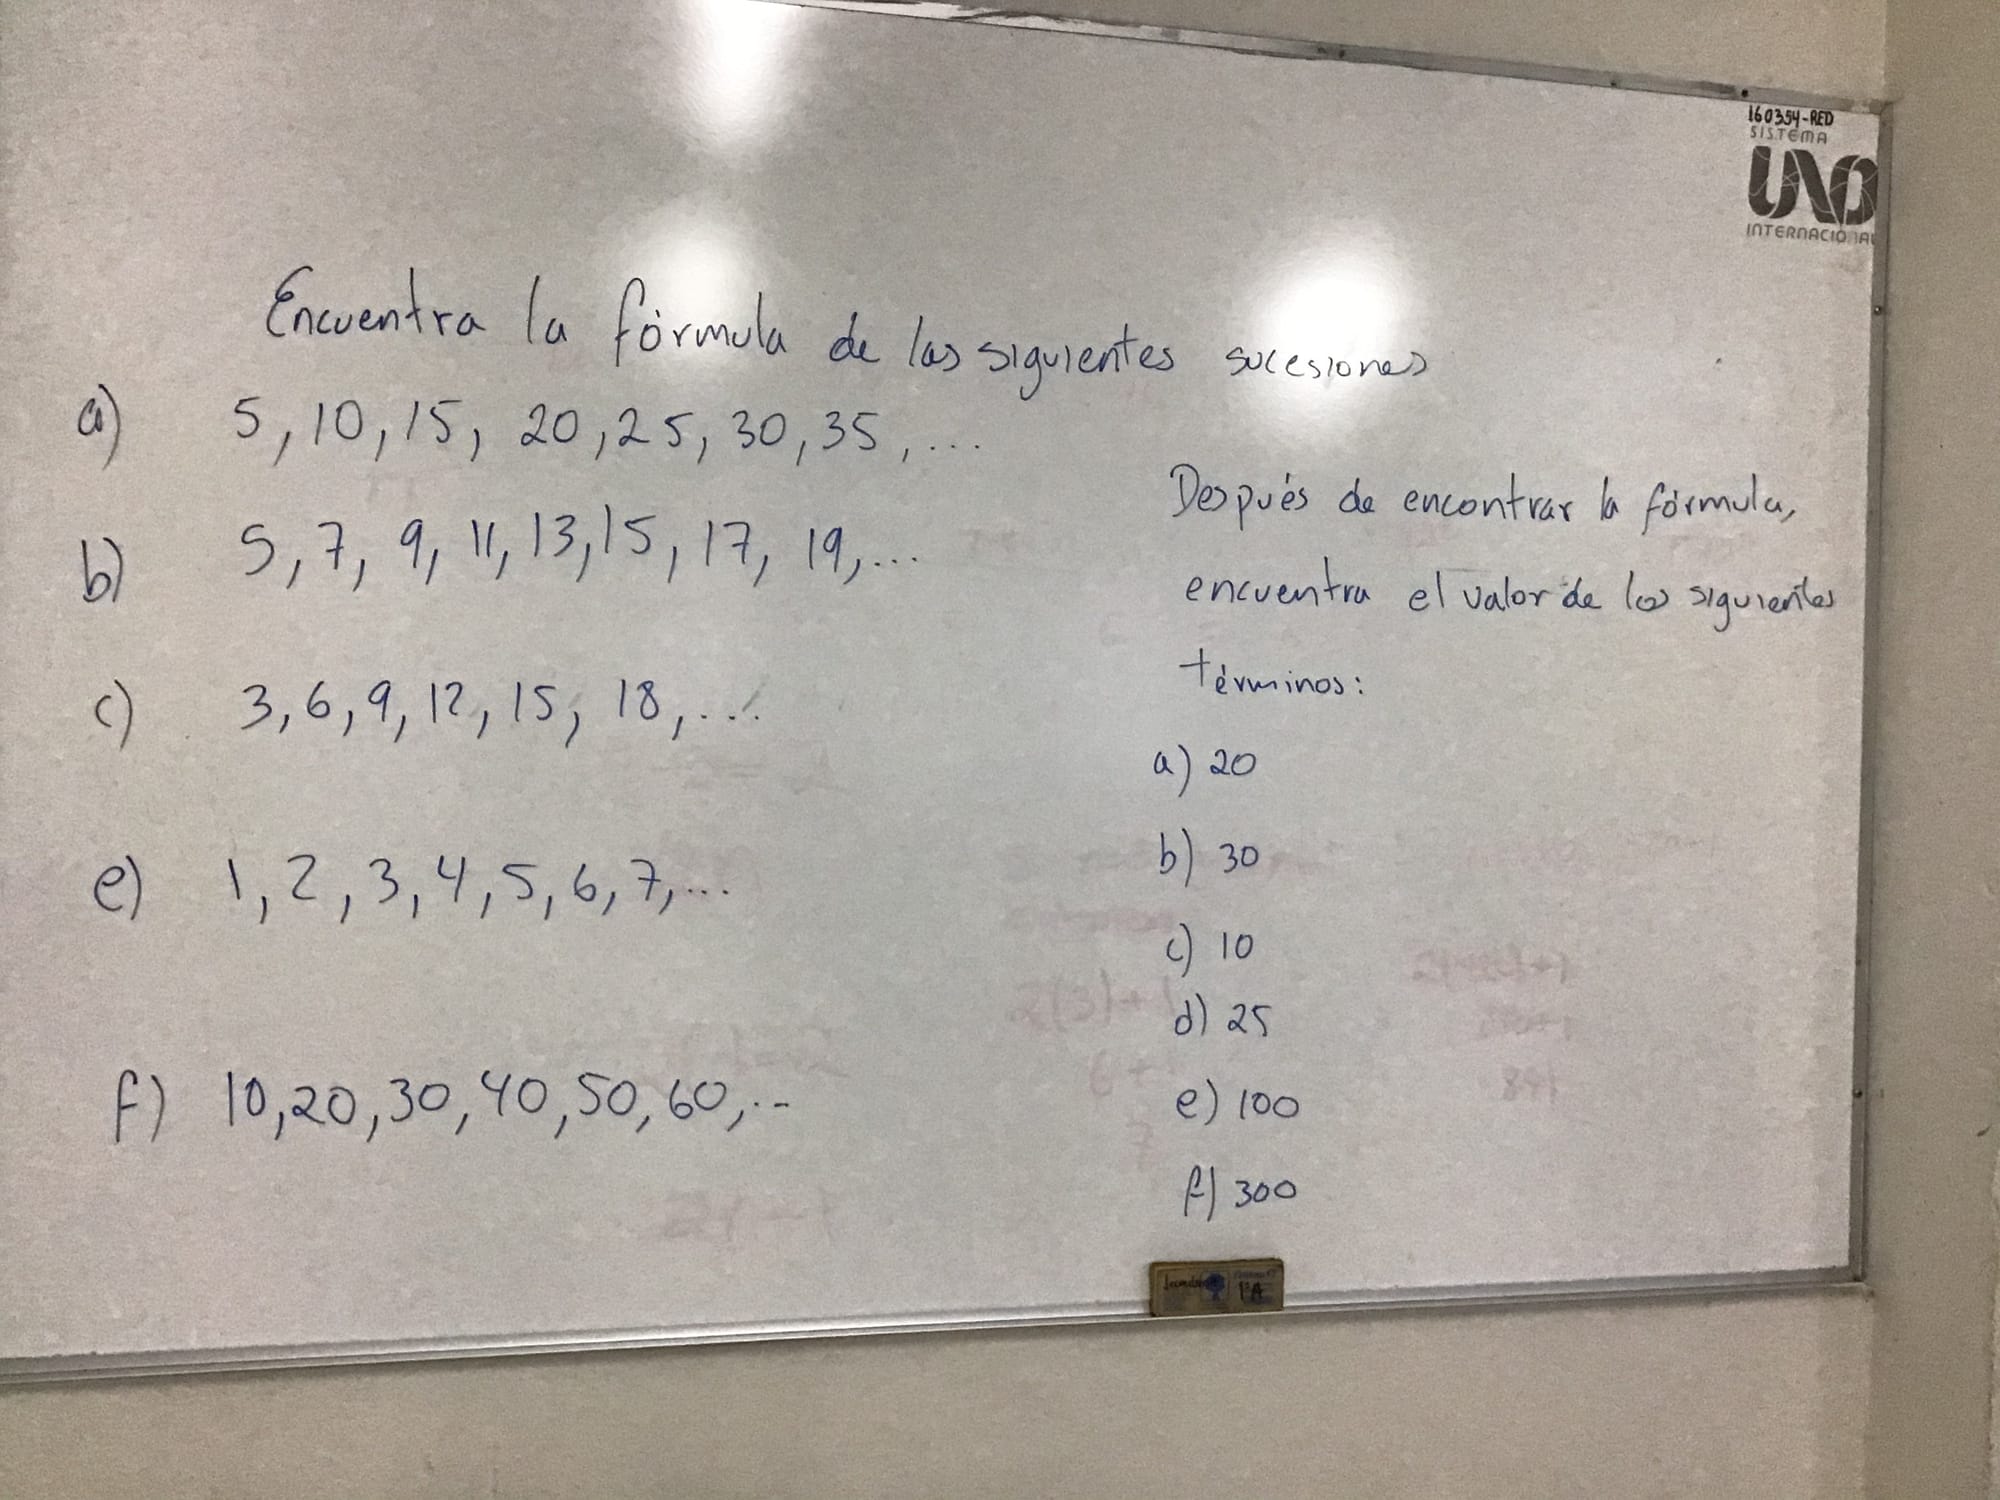 160354-RED
SISTEMA
UNO
INTERNACIONAL
Encuentra la fórmula de las siguientes sucesiones
a) 5, 10, 15, 20, 25, 30, 35, ...
b) 5, 7, 9, 11, 13, 15, 17, 19, ...
c) 3, 6, 9, 12, 15, 18, ...
e) 1, 2, 3, 4, 5, 6, 7, ...
f) 10, 20, 30, 40, 50, 60, ...
Después de encontrar la fórmula,
encuentra el valor de los siguientes
términos:
a) 20
b) 30
c) 10
d) 25
e) 100
f) 300
1°A